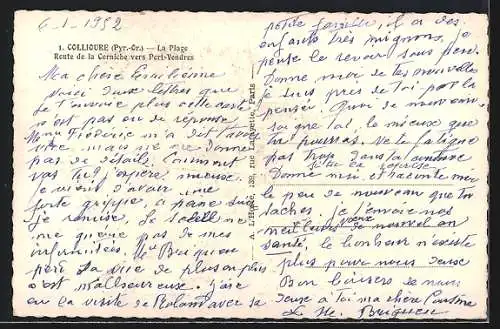 6-1-1952
1. COLLIOURE (Pyr.-Or.) — La Plage
Route de la Corniche vers Port-Vendres
Ma chère
voici deux lettres que
je t'envoie plus cette carte
n'ont pas eu de réponse
Mme Frédéric m'a dit
vive mais ne me donne
pas de détails. Comment
vas tu j'espère mieux.
je viens d'avoir une
forte grippe, à peine suis
je remise. Le soleil ne
me guérit pas de mes
infirmités.
La vie de plus en plus
est malheureuse. j'ai
eu la visite de Roland avec sa
petite famille, il a des
enfants très mignons, je
pense le revoir sous peu.
Donne moi de tes nouvelles
je suis près de toi par la
pensée. Quoi de nouveau
soigne toi, le mieux que
tu pourras. Ne te fatigue
pas trop dans la couture
Donne moi et raconte moi
le peu de nouveau que tu
saches je t'envoie nos
meilleurs vœux de nouvel an
santé, le bonheur n'existe
plus pour nous deux
Bon baisers de nous
deux à toi ma chère
L'Hoste, 139, rue Lafayette, Paris